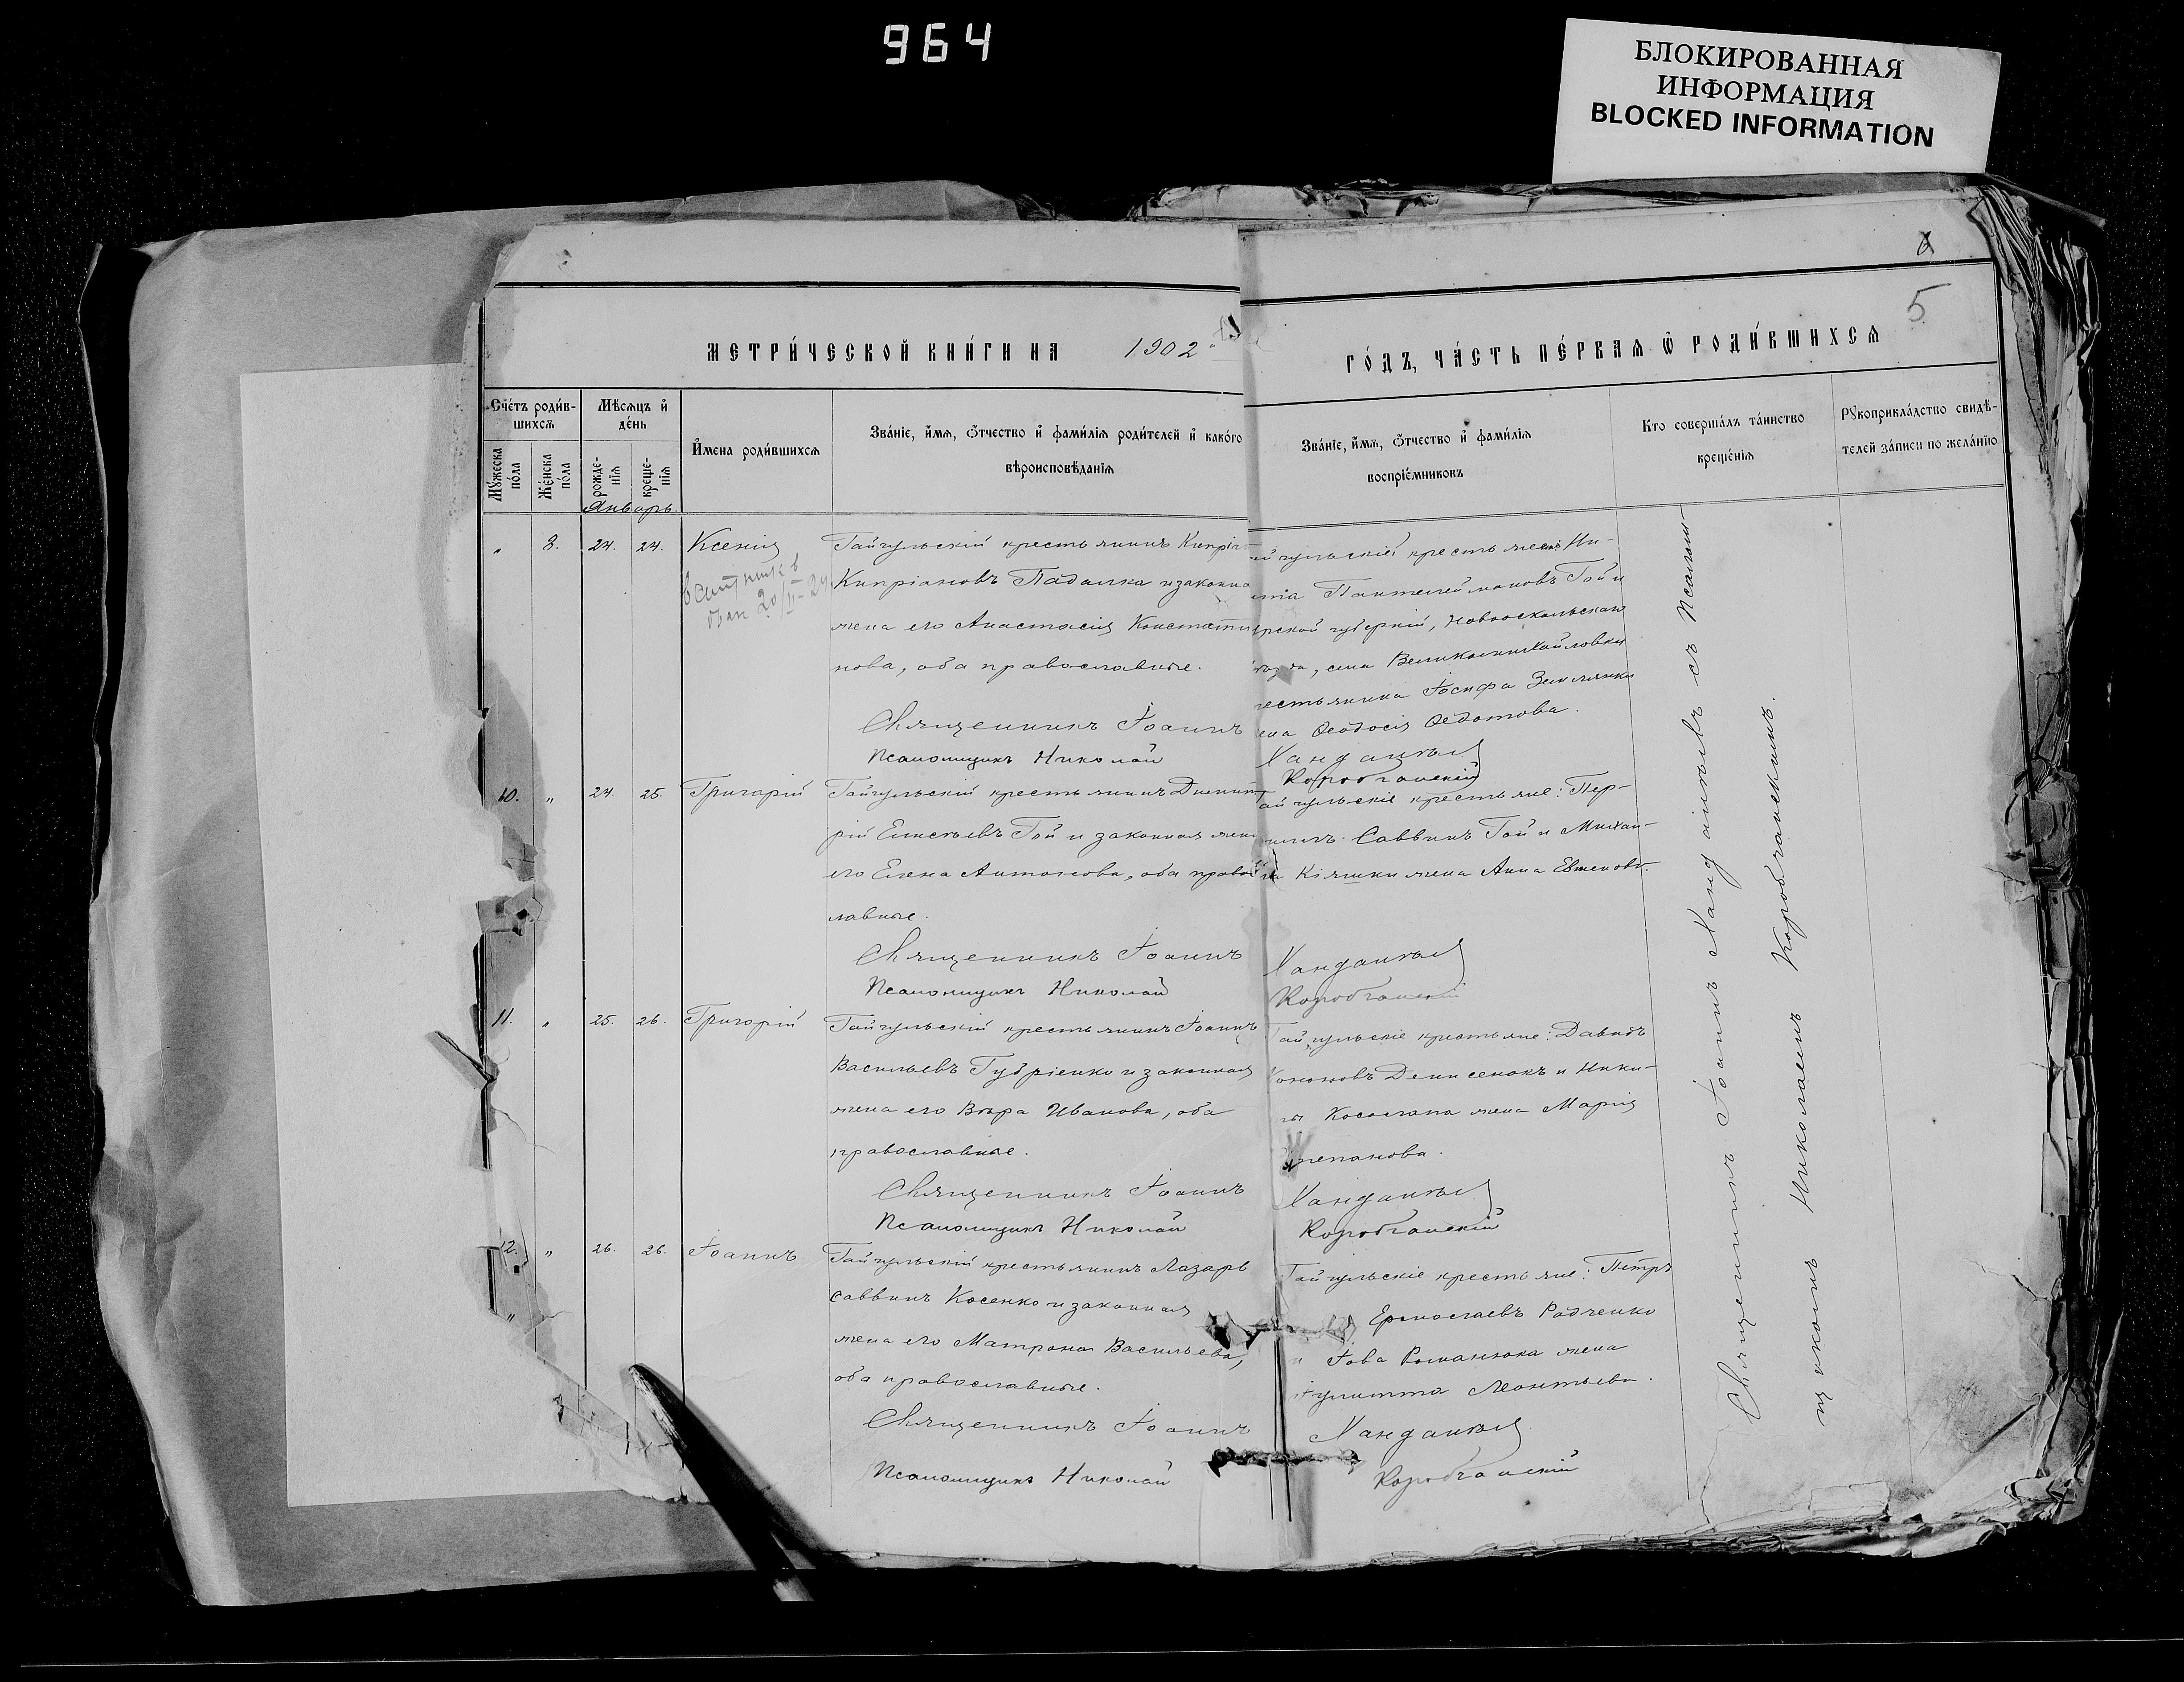 964
БЛОКИРОВАННАЯ
ИНФОРМАЦИЯ
BLOCKED INFORMATION
5
МЕТРИ́ЧЕСКОЙ КНИ́ГИ НА 1902 ГО́ДЪ, ЧА́СТЬ ПЕ́РВАЯ Ѽ РОДИ́ВШИХСЯ
Сче́тъ роди́в-
шихсѧ
Мꙋ́жеска
по́ла
Же́нска
по́ла
Мѣ́сѧцъ и҆
де́нь
рожде-
нїѧ
креще-
нїѧ
И҆́мена роди́вшихсѧ
Зва́нїе, и҆́мѧ, ѻ҆́тчество и҆ фами́лїѧ роди́телей и҆ како́гѡ
вѣроисповѣ́данїѧ
Зва́нїе, и҆́мѧ, ѻ҆́тчество и҆ фами́лїѧ
воспрїе́мниковъ
Кто соверша́лъ та́инство
креще́нїѧ
Рꙋкоприкла́дство свидѣ́-
телей за́писи по жела́нїю
Январь
" 8. 24. 24. Ксенія
Гайчульскій крестьянинъ
Кипріановъ Падалка и законна
жена его Анастасія Константи
нова, оба православные.
Священникъ Іоаннъ
Псаломщикъ Николай
йчульскій крестьянинъ Ни-
Пантелеймоновъ Гой и
рской губерніи, Новооскольскаго
села Великомихайловки
естьянина Іосифа Землянки
ена Ѳеодосія Ѳедотова.
Хандалѣев
Коробчанскій
10. " 24. 25. Григорій
Гайчульскій крестьянинъ Димит
рій Елисѣевъ Гой и законная жена
его Елена Антонова, оба правос
лавные.
Священникъ Іоаннъ
Псаломщикъ Николай
айчульскіе крестьяне: Пор-
Саввинъ Гой и Михаи-
ла Кіяшки жена Анна Евменова.
Коробчанскій
11. " 25. 26. Григорій
Гайчульскій крестьянинъ Іоаннъ
Васильевъ Губріенко и законная
жена его Вѣра Иванова, оба
православные.
Священникъ Іоаннъ
Псаломщикъ Николай
Гайчульскіе крестьяне: Давидъ
Кононовъ Денисенокъ и Ники-
ты Косолапа жена Марія
Степанова.
Коробчанскій
12. " 26. 26. Іоаннъ
Гайчульскій крестьянинъ Лазарь
Саввинъ Косенко и законная
жена его Матрона Васильева,
оба православные.
Священникъ Іоаннъ
Псаломщикъ Николай
Гайчульскіе крестьяне: Петръ
Ермолаевъ Радченко
и Іова Романюка жена
Іулитта Леонтьева.
Коробчанскій
Священникъ Іоаннъ съ псалом-
щикомъ Николаемъ Коробчанскимъ.